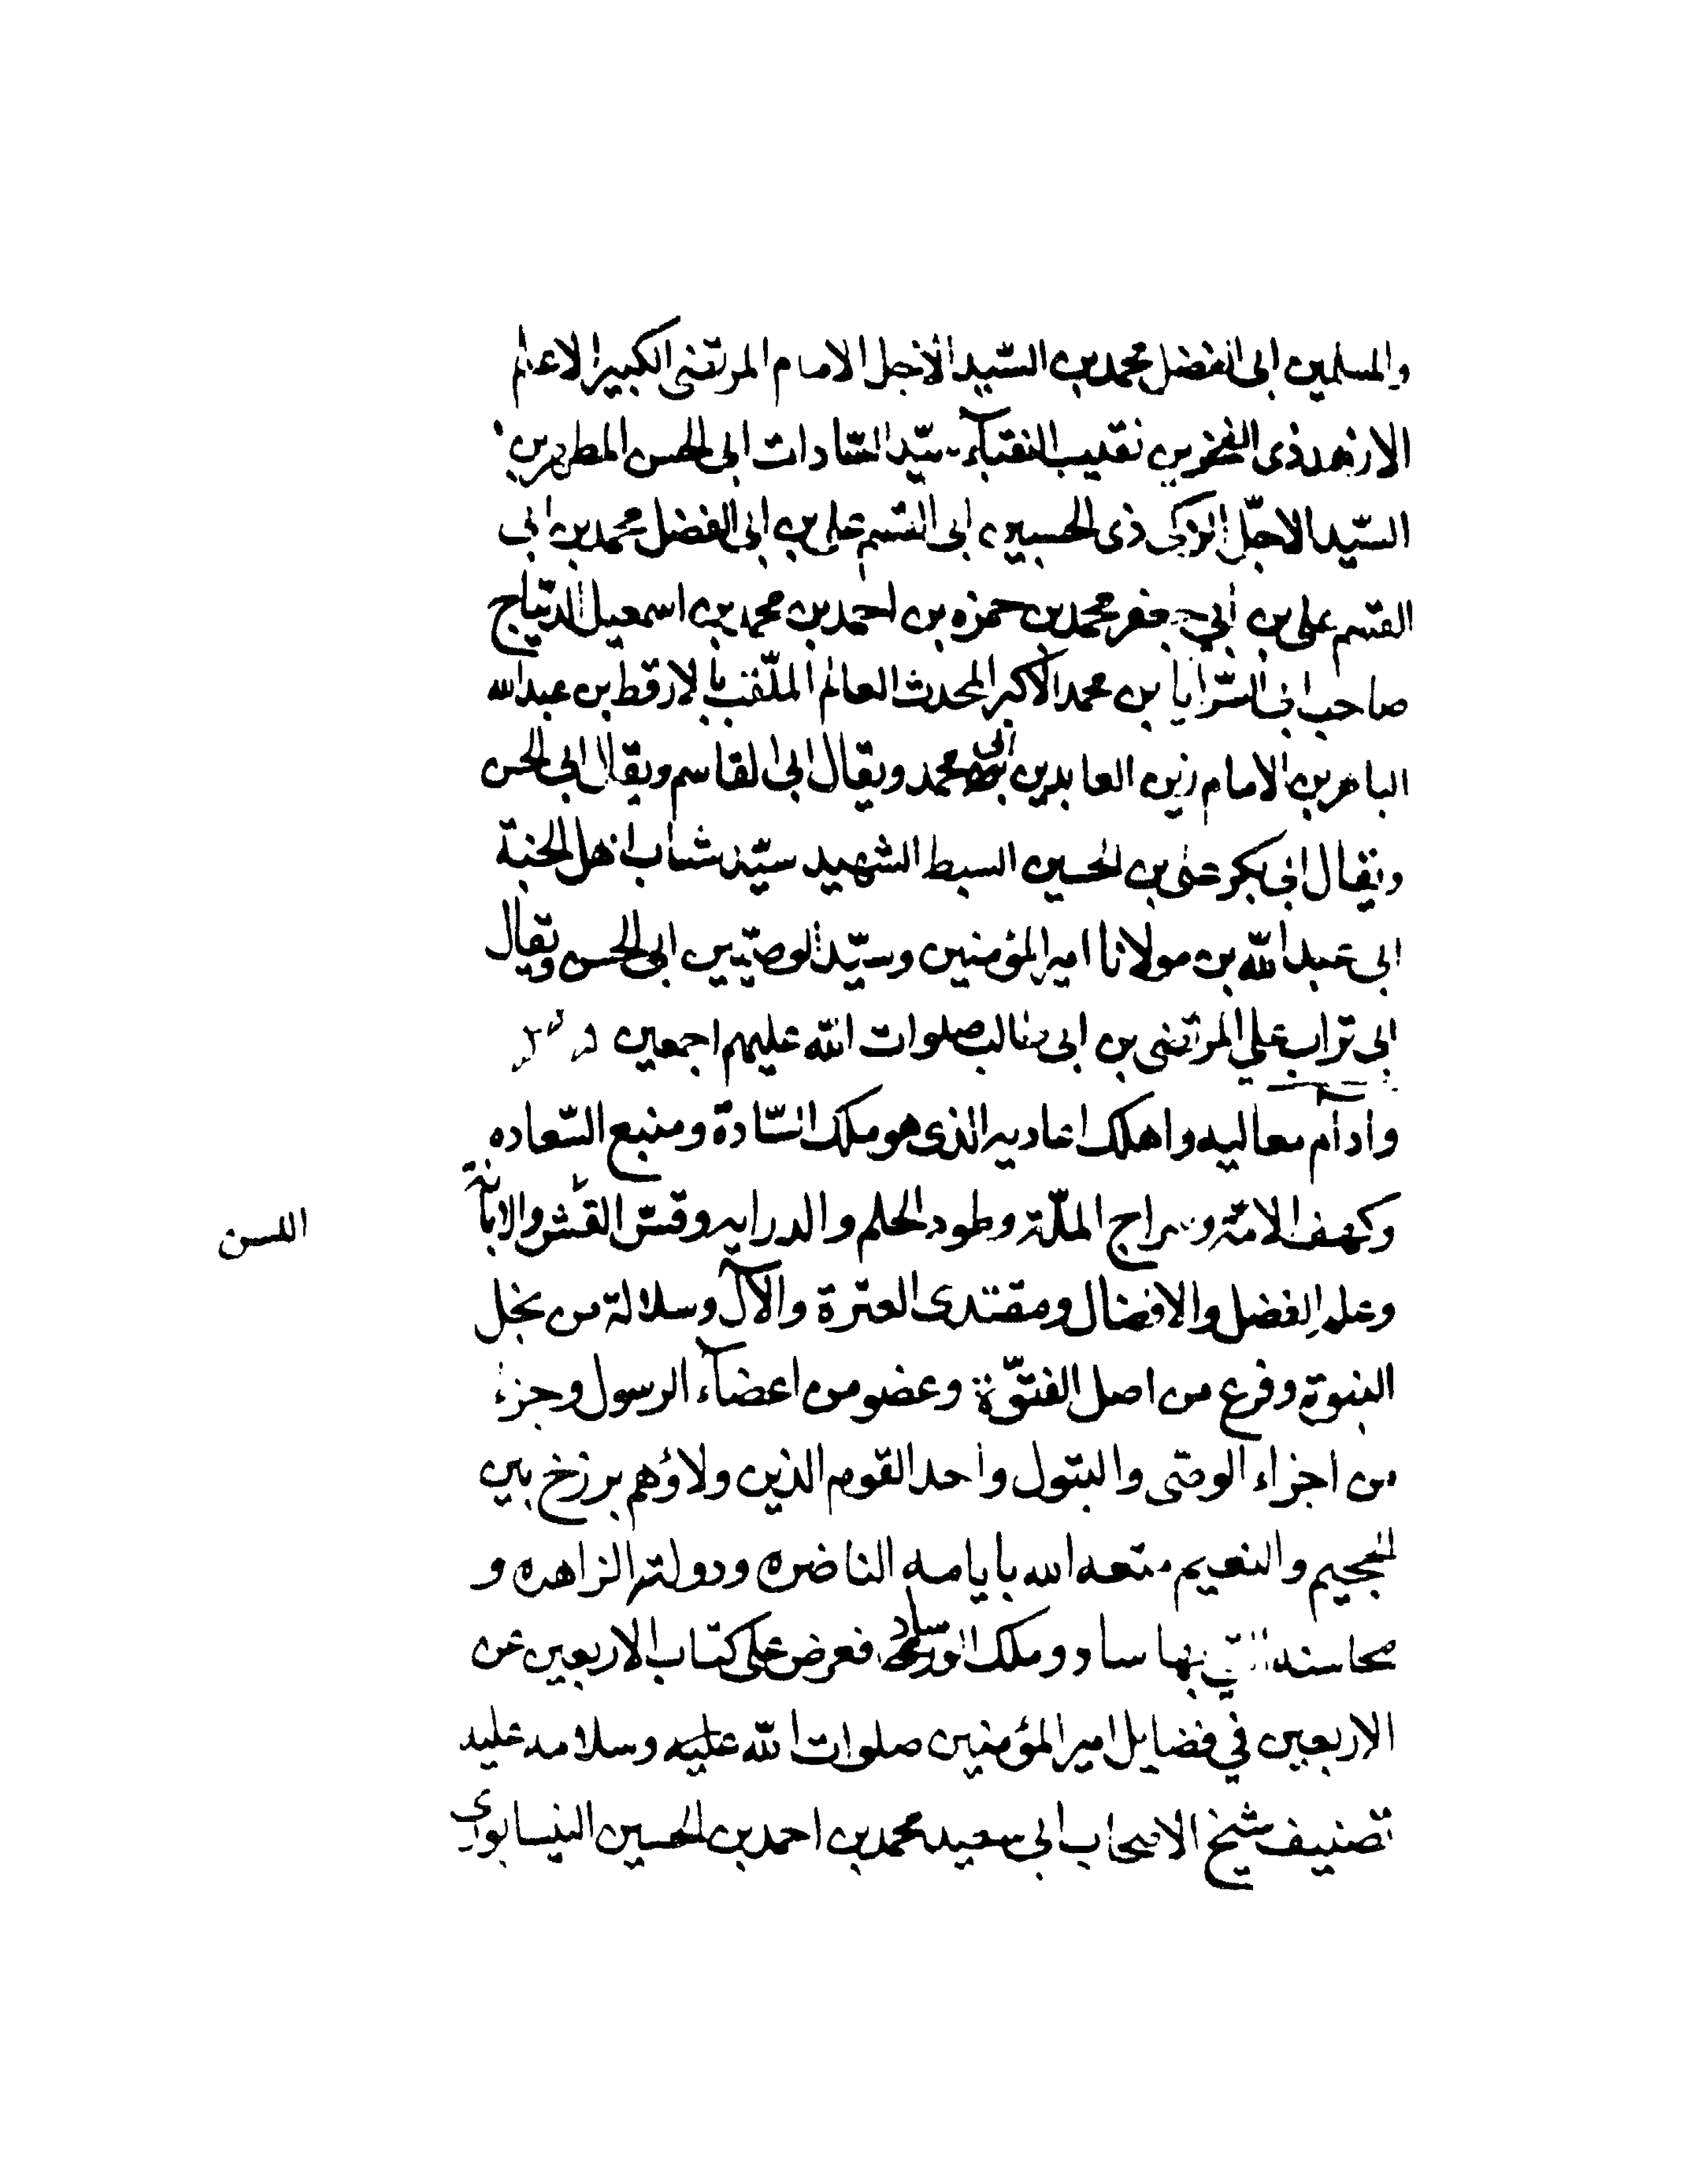 والمسلمين ابى الفضل محمد بن السّيد الاجل الامام المرتضى الكبير الاعلم
الازهد ذى الفخرين نقيب النقبآء سيّد السّادات ابى الحسن المطهر بن
السّيد الاجلّ الزكى ذى الحسبين ابى القسم على بن ابى الفضل محمد بن ابى
القسم على بن ابي جعفر محمد بن حمزه بن احمد بن محمد بن اسمعيل الديّباج
صاحب ابى السّرايا بن محمد الاكبر المحدث العالم الملّقب بالارقط بن عبدالله
الباهر بن الامام زين العابدين ابى محمد ويقال ابى القاسم ويقال ابى الحسن
ويقال ابى بكر على بن الحسين السبط الشهيد سيّد شباب اهل الجنة
ابى عبد الله بن مولانا امير المؤمنين وسيّد الوصيّين ابى الحسن ويقال
ابى تراب علي المرتضى بن ابى طالب صلوات الله عليهم اجمعين
وادام معاليه واهلك اعاديه الذى هو ملك السّادة ومنبع السّعاده
وكهف الامّة وسراج الملّة وطود الحلم والدرايه وقسّ القسّ والابانة
اللسن
وعلم الفضل والافضال ومقتدى العترة والآل وسلالة من نجل
النبوة وفرع من اصل الفتوّة وعضو من اعضآء الرسول وجزء
من اجزاء الوصّى والبتول واحد القوم الذين ولاؤهم برزخ بين
الجحيم والنعيم متعه الله بايامه الناضره ودولته الزاهره و
محاسنه التي بها ساد وملك فعرض على كتاب الاربعين عن
الاربعين في فضايل امير المؤمنين صلوات الله عليه وسلامه عليه
تصنيف شيخ الاصحاب ابى سعيد محمد بن احمد بن الحسين النيسابوري